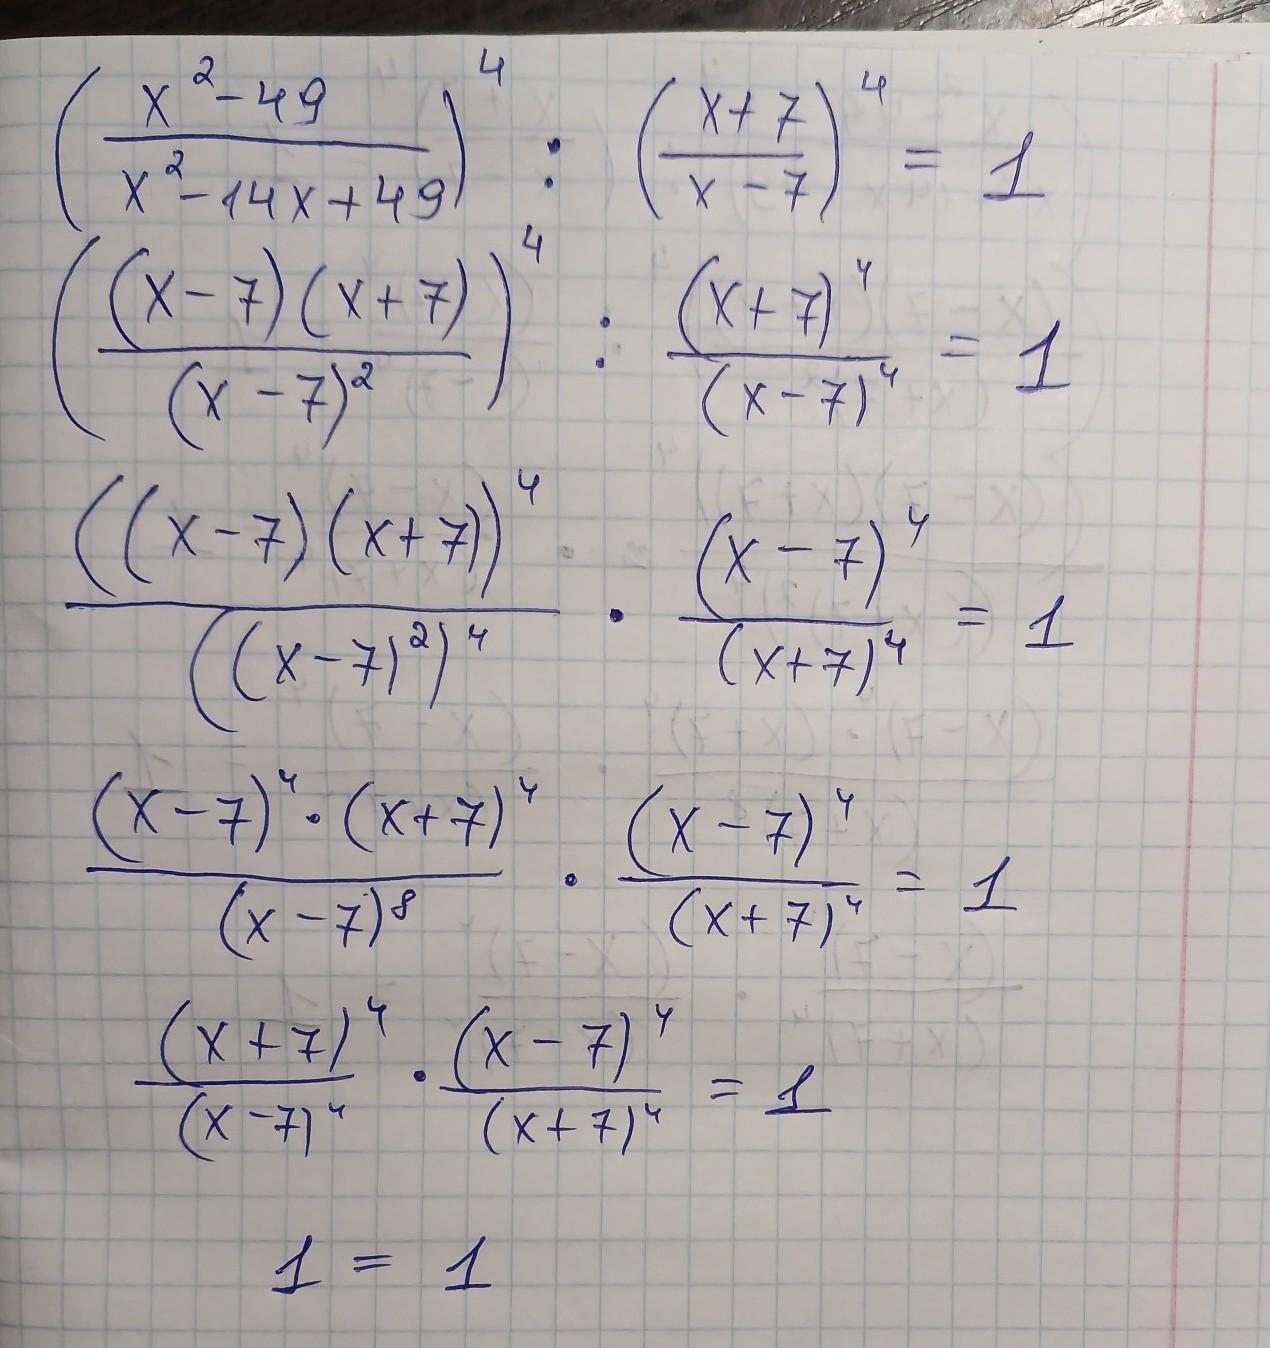 (x²-49 / x²-14x+49)⁴ : (x+7 / x-7)⁴ = 1
((x-7)(x+7) / (x-7)²)⁴ : (x+7)⁴ / (x-7)⁴ = 1
((x-7)(x+7))⁴ / ((x-7)²)⁴ · (x-7)⁴ / (x+7)⁴ = 1
(x-7)⁴·(x+7)⁴ / (x-7)⁸ · (x-7)⁴ / (x+7)⁴ = 1
(x+7)⁴ / (x-7)⁴ · (x-7)⁴ / (x+7)⁴ = 1
1 = 1